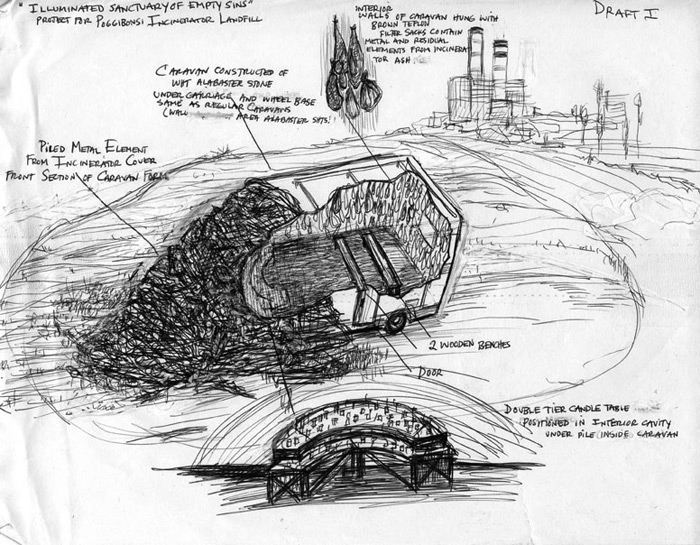 "ILLUMINATED SANCTUARY OF EMPTY SINS"
PROJECT FOR POGGIBONSI INCINERATOR LANDFILL
DRAFT I
INTERIOR
WALLS OF CARAVAN HUNG WITH
BROWN TEFLON
FILTER SACKS CONTAIN
METAL AND RESIDUAL
ELEMENTS FROM INCINERA
TOR ASH
CARAVAN CONSTRUCTED OF
WHT ALABASTER STONE
UNDERCARRIAGE AND WHEEL BASE
SAME AS REGULAR CARAVANS
(WALL AREA ALABASTER
PILED METAL ELEMENT
FROM INCINERATOR COVER
FRONT SECTION OF CARAVAN FORM
2 WOODEN BENCHES
DOOR
DOUBLE TIER CANDLE TABLE
POSITIONED IN INTERIOR CAVITY
UNDER PILE INSIDE CARAVAN